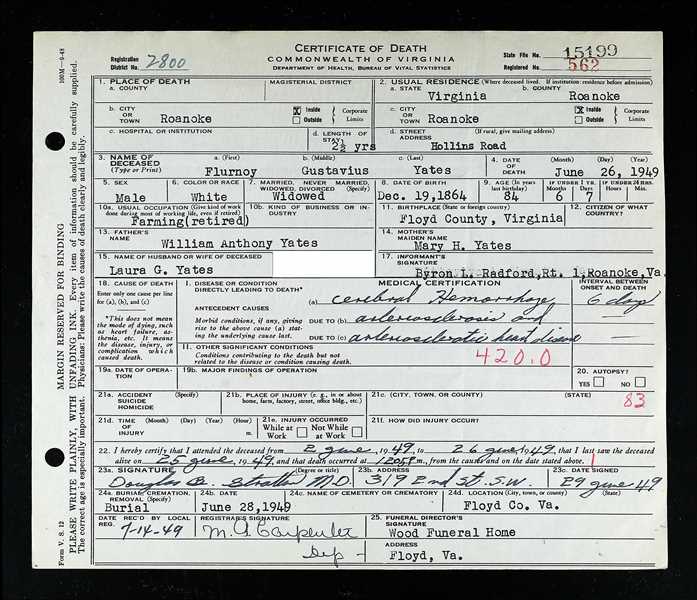 CERTIFICATE OF DEATH
COMMONWEALTH OF VIRGINIA
DEPARTMENT OF HEALTH, BUREAU OF VITAL STATISTICS
Registration District No. 2800
State File No. 15199
Registered No. 562
100M—9-48
MARGIN RESERVED FOR BINDING
PLEASE WRITE PLAINLY, WITH UNFADING INK. Every item of information should be carefully supplied.
The correct age is especially important. Physician: Please write the causes of death clearly and legibly.
Form V. S. 12
1. PLACE OF DEATH
a. COUNTY
MAGISTERIAL DISTRICT
2. USUAL RESIDENCE (Where deceased lived. If institution: residence before admission)
a. STATE
Virginia
b. COUNTY
Roanoke
b. CITY OR TOWN
Roanoke
X Inside Outside Corporate Limits
c. CITY OR TOWN
Roanoke
X Inside Outside Corporate Limits
c. HOSPITAL OR INSTITUTION
d. LENGTH OF STAY
2½ yrs
d. STREET ADDRESS (If rural, give mailing address)
Hollins Road
3. NAME OF DECEASED (Type or Print)
a. (First) b. (Middle) c. (Last)
Flurnoy Gustavius Yates
4. DATE OF DEATH (Month) (Day) (Year)
June 26, 1949
5. SEX
Male
6. COLOR OR RACE
White
7. MARRIED, NEVER MARRIED, WIDOWED, DIVORCED (Specify)
Widowed
8. DATE OF BIRTH
Dec. 19, 1864
9. AGE (In years last birthday)
84
IF UNDER 1 YR. 6 7
IF UNDER 24 HRS.
10a. USUAL OCCUPATION (Give kind of work done during most of working life, even if retired)
Farming(retired)
10b. KIND OF BUSINESS OR INDUSTRY
11. BIRTHPLACE (State or foreign country)
Floyd County, Virginia
12. CITIZEN OF WHAT COUNTRY?
13. FATHER'S NAME
William Anthony Yates
14. MOTHER'S MAIDEN NAME
Mary H. Yates
15. NAME OF HUSBAND OR WIFE OF DECEASED
Laura G. Yates
17. INFORMANT'S SIGNATURE
Byron L. Radford, Rt. 1 Roanoke, Va.
18. CAUSE OF DEATH
Enter only one cause per line for (a), (b), and (c)
*This does not mean the mode of dying, such as heart failure, asthenia, etc. It means the disease, injury, or complication which caused death.
MEDICAL CERTIFICATION
I. DISEASE OR CONDITION DIRECTLY LEADING TO DEATH*
(a) Cerebral Hemorrhage
INTERVAL BETWEEN ONSET AND DEATH
6 days
ANTECEDENT CAUSES
Morbid conditions, if any, giving rise to the above cause (a) stating the underlying cause last.
DUE TO (b) arteriosclerosis and
DUE TO (c) arteriosclerotic heart disease
II. OTHER SIGNIFICANT CONDITIONS
Conditions contributing to the death but not related to the disease or condition causing death.
420.0
19a. DATE OF OPERATION
19b. MAJOR FINDINGS OF OPERATION
20. AUTOPSY?
YES NO
21a. ACCIDENT SUICIDE HOMICIDE
21b. PLACE OF INJURY (e. g., in or about home, farm, factory, street, office bldg., etc.)
21c. (CITY, TOWN, OR COUNTY) (STATE)
83
21d. TIME OF INJURY (Month) (Day) (Year) (Hour) m.
21e. INJURY OCCURRED
While at Work Not While at Work
21f. HOW DID INJURY OCCUR?
22. I hereby certify that I attended the deceased from 2 June, 1949, to 26 June, 1949, that I last saw the deceased
alive on 25 June, 1949, and that death occurred at m., from the causes and on the date stated above.
23a. SIGNATURE (Degree or title)
Douglas B. Stratton M.D.
23b. ADDRESS
319 2nd St. S.W.
23c. DATE SIGNED
29 June 49
24a. BURIAL, CREMATION, REMOVAL (Specify)
Burial
24b. DATE
June 28, 1949
24c. NAME OF CEMETERY OR CREMATORY
24d. LOCATION (City, town, or county) (State)
Floyd Co. Va.
DATE REC'D BY LOCAL REG.
7-14-49
REGISTRAR'S SIGNATURE
M. A. Carpenter
Dep
25. FUNERAL DIRECTOR'S SIGNATURE
Wood Funeral Home
ADDRESS
Floyd, Va.